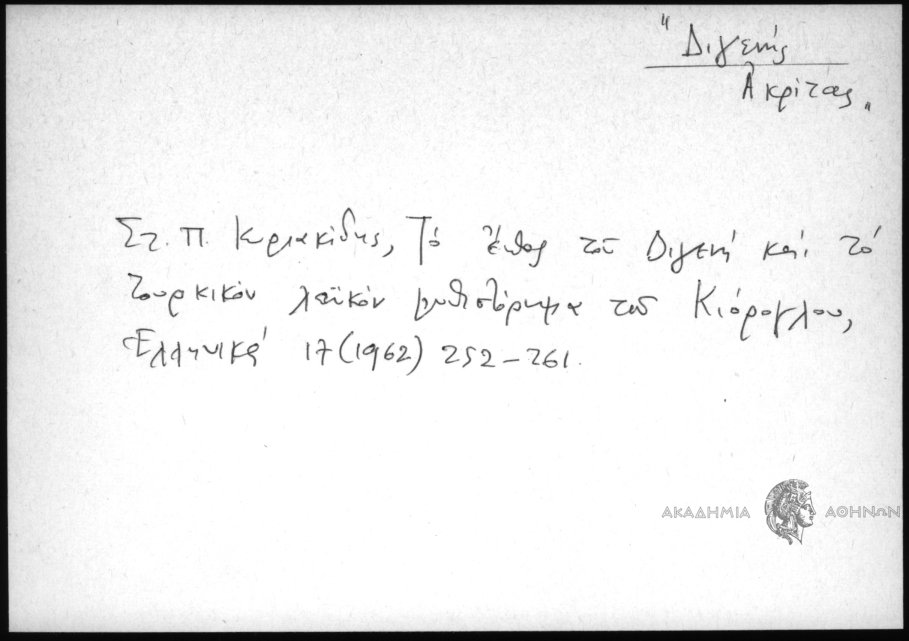 "Διγενής
Ἀκρίτας"
Στ. Π. Κυριακίδης, Τό ἔπος τοῦ Διγενῆ καί τό
τουρκικόν λαϊκόν μυθιστόρημα τοῦ Κιόρογλου,
Ἑλληνικά 17 (1962) 252-261.
ΑΚΑΔΗΜΙΑ ΑΘΗΝΩΝ